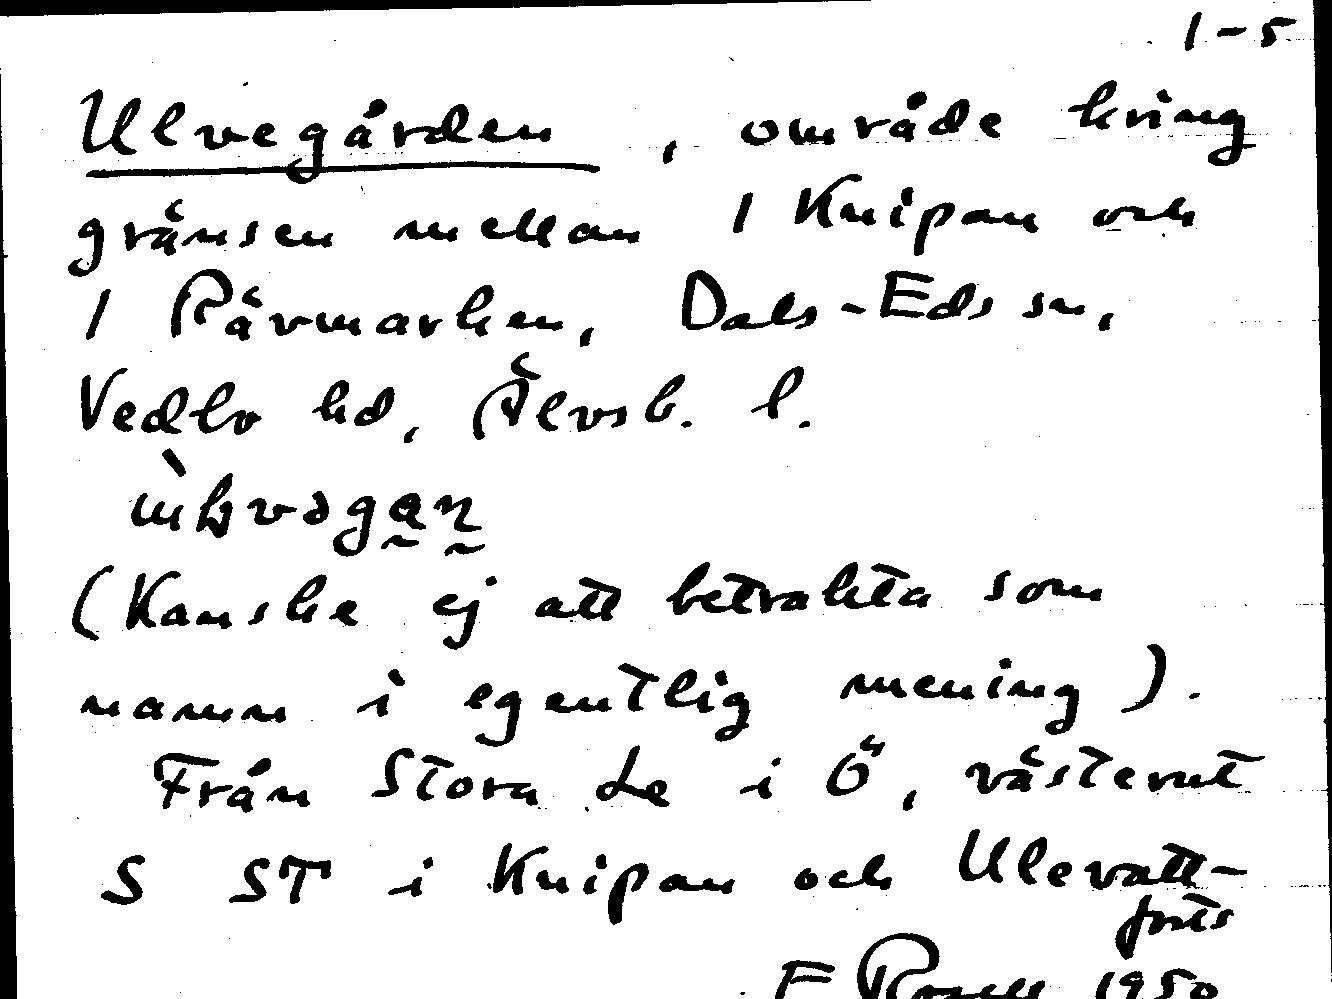 1-5
Ulvegården, område kring
gränsen mellan 1 Knipan och
1 Rävmarken, Dals-Eds sn,
Vedbo hd, Älvsb. l.
(Kanske ej att betrakta som
namn i egentlig mening).
Från Stora Le i Ö, västerut
S ST i Knipan och Ulevatt-
forts
E 1950